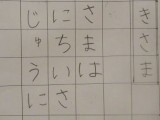 きさま
さまは
にちいさ
じゅうに